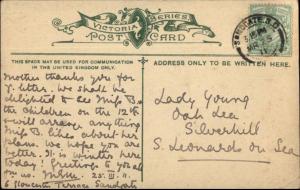 VICTORIA SERIES
POST CARD
THIS SPACE MAY BE USED FOR COMMUNICATION
IN THE UNITED KINGDOM ONLY.
ADDRESS ONLY TO BE WRITTEN HERE.
Mother thanks you for
yr. letter. We shall be
delighted to see Miss B. &
the children on the 12th
& will arrange anything
Miss B. likes about her
plans. We hope you are
better. It is winter here
today! Greetings to you
all from us. 25. III. 11.
6 Gloucester Terrace Sandgate
Lady Young
Oak Lea
Silverhill
S. Leonards on Sea